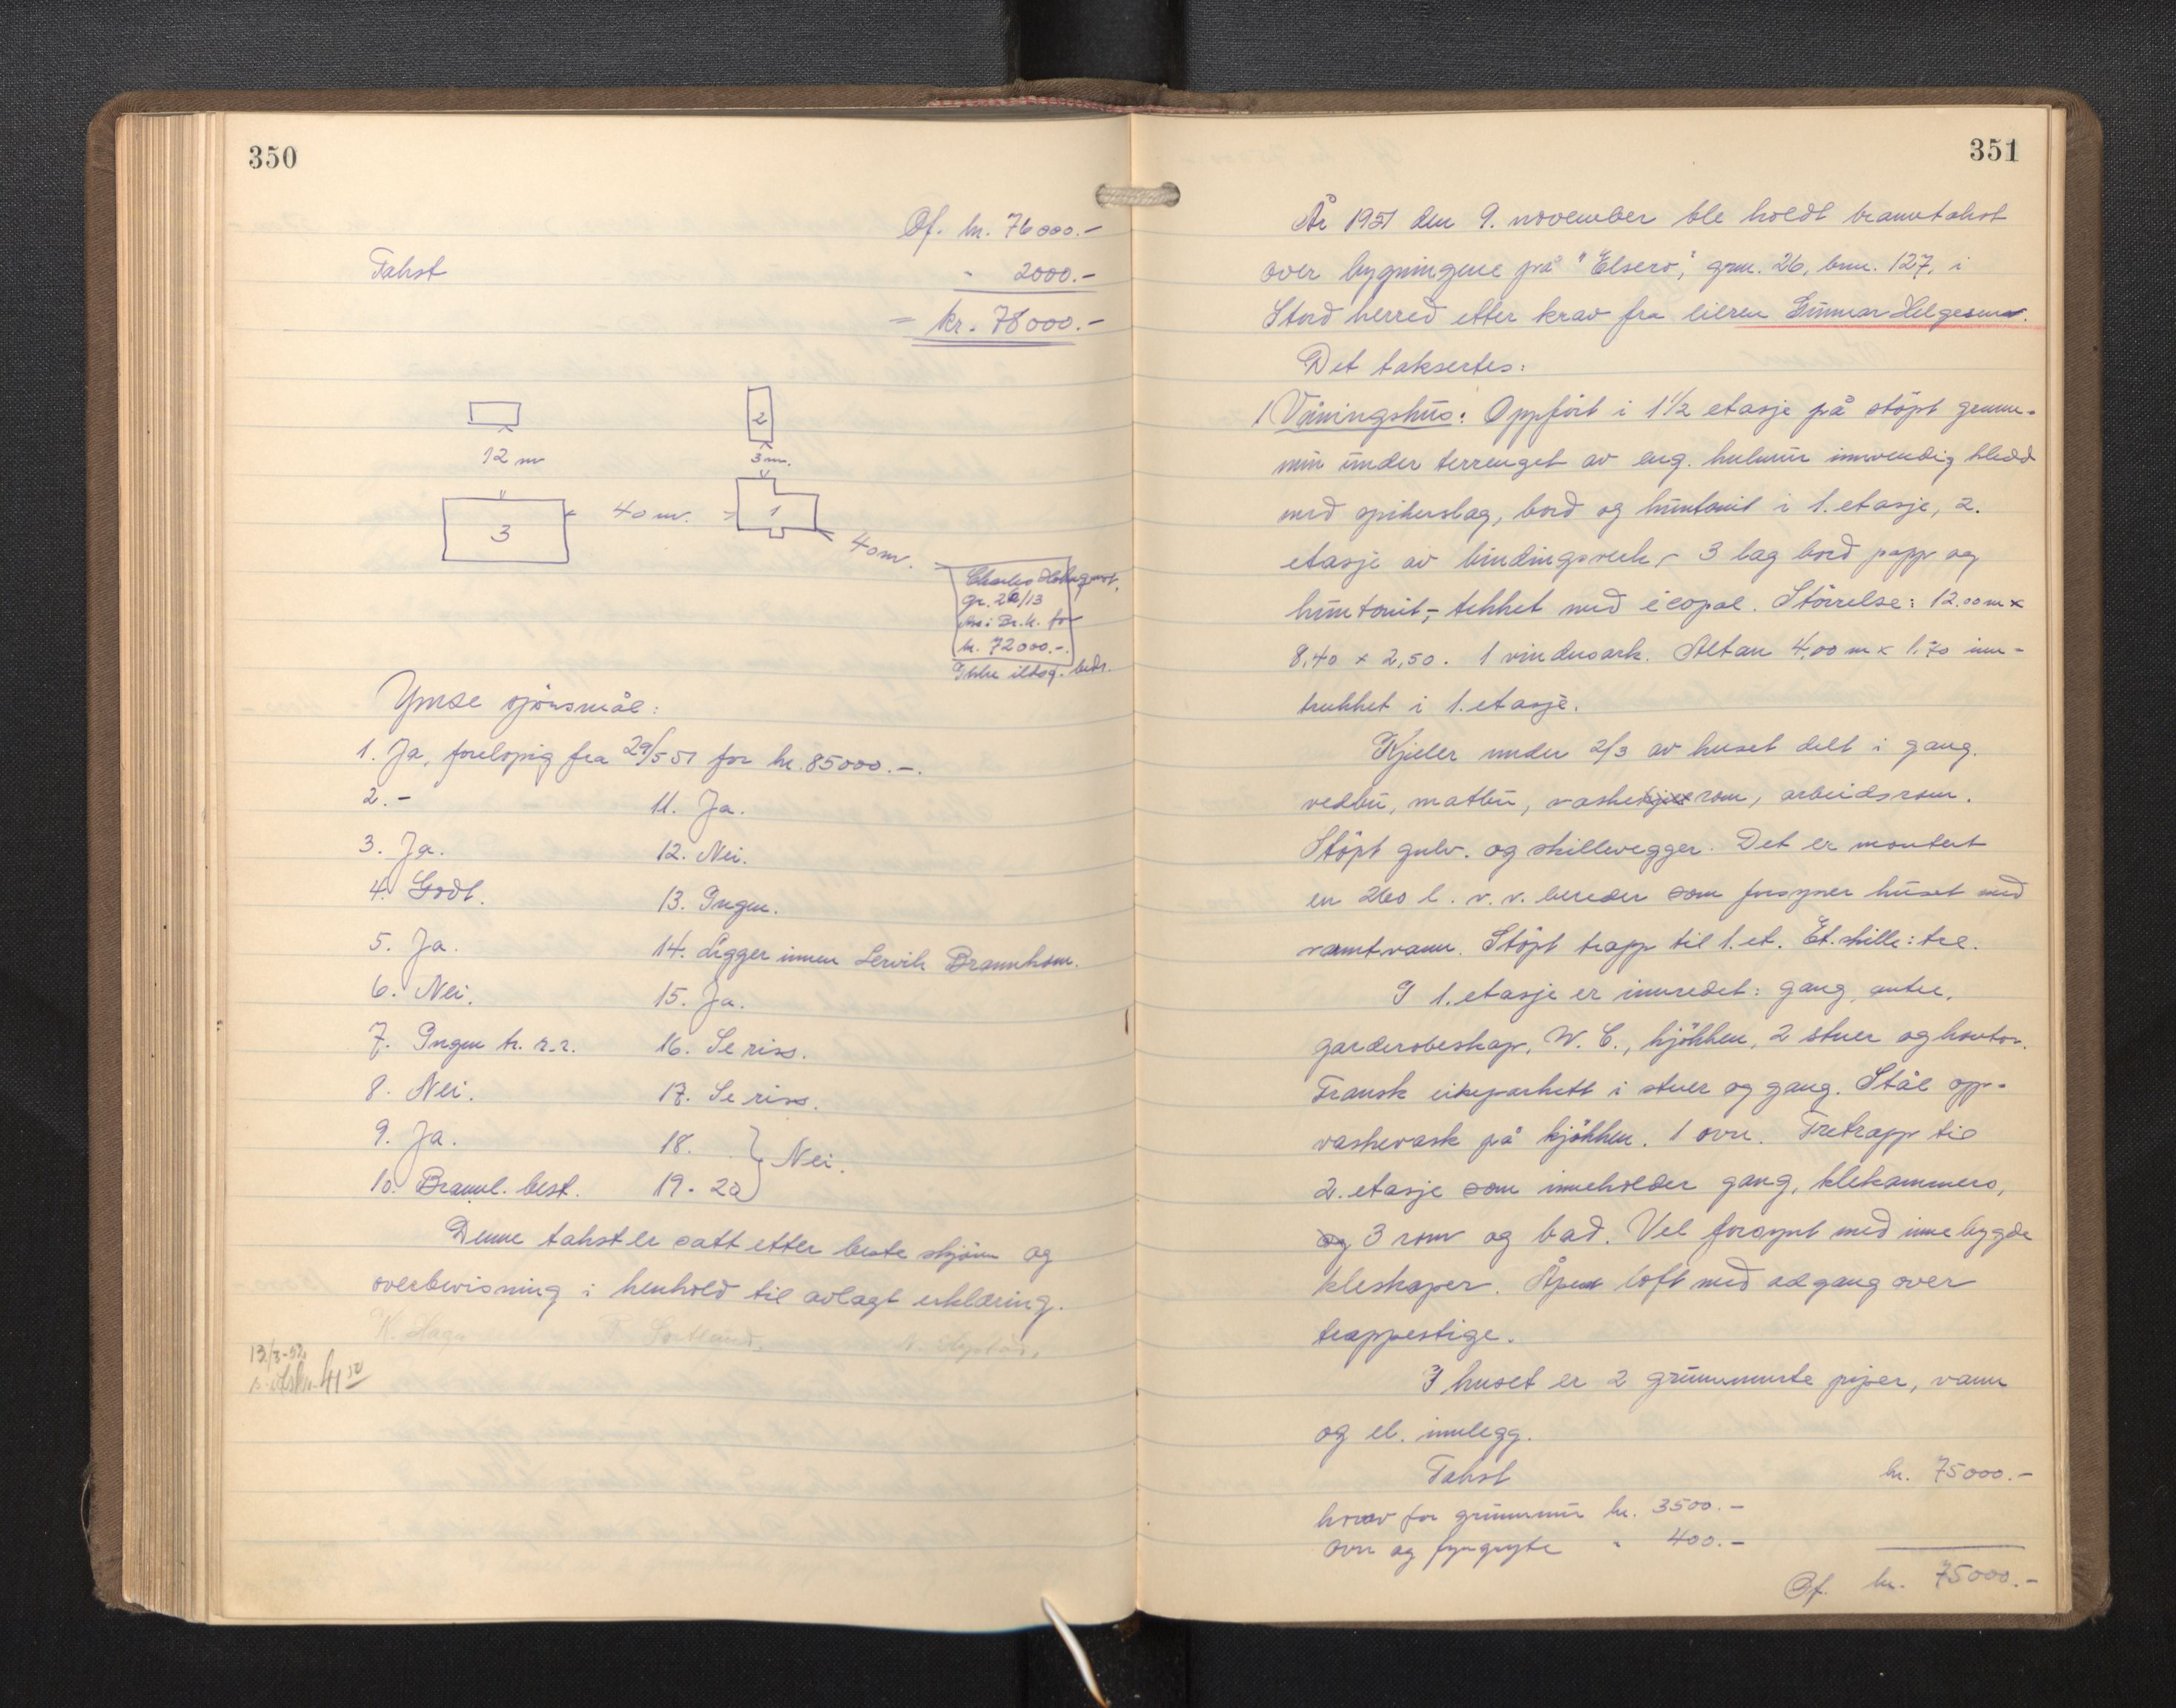 350
Of. kr. 76000.-
Takst " 2000.-
= kr. 78000.-
2
12 m
3 m.
3
40 m.
1
40 m.
Charles
gr. 26/13
Ass. i Br.k. for
kr. 72000.-.
Ikke ildsf. bedr.
Ymse spörsmål:
1. Ja, forelöpig fra 29/5 51 for kr. 85000.-.
2. -
3. Ja.
4. Godt.
5. Ja.
6. Nei.
7. Ingen tr. r.r.
8. Nei.
9. Ja.
10. Brannl. best.
11. Ja.
12. Nei.
13. Ingen.
14. Ligger innen Lervik Brannkom.
15. Ja.
16. Se riss.
17. Se riss.
18.
19 - 20 } Nei.
Denne takst er satt etter beste skjönn og
overbevisning i henhold til avlagt erklæring.
K. Haga
13/3-52
351
År 1951 den 9. november ble holdt branntakst
over bygningene på "Elsero", gnr. 26, bnr. 127, i
Stord herred etter krav fra eieren Gunnar Helgesen.
Det taksertes:
1 Våningshus: Oppfört i 1 1/2 etasje på stöpt grunn-
mur under terrenget av eng. hulmur innvendig kledd
med spikerslag, bord og huntonit i 1. etasje, 2.
etasje av bindingsverk - 3 lag bord papp og
huntonit, - tekket med icopal. Störrelse: 12.00 m x
8,40 x 2,50. 1 vindusark. Altan 4,00 m x 1.70 inn-
trukket i 1. etasje.
Kjeller under 2/3 av huset delt i gang.
vedbu, matbu, vaskerom, arbeidsrom.
Stöpt gulv. og skillevegger. Det er montert
en 260 l. v. v. bereder som forsyner huset med
varmtvann. Stöpt trapp til 1. et. Et. skille: tre.
I 1. etasje er innredet: gang, entre,
garderobeskap, W. C., kjökken, 2 stuer og kontor.
Fransk eikeparkett i stuer og gang. Stål opp-
vaskevask på kjökken. 1 ovn. Tretrapp til
2. etasje som inneholder gang, klekammers,
og 3 rom og bad. Vel forsynt med innebygde
kleskaper. Åpent loft med adgang over
trappestige.
I huset er 2 grunnmurte piper, vann
og el. innlegg.
Takst kr. 75000.-
herav for grunnmur kr. 3500.-
ovn og fyrgryte " 400.-
Of. kr. 75000.-